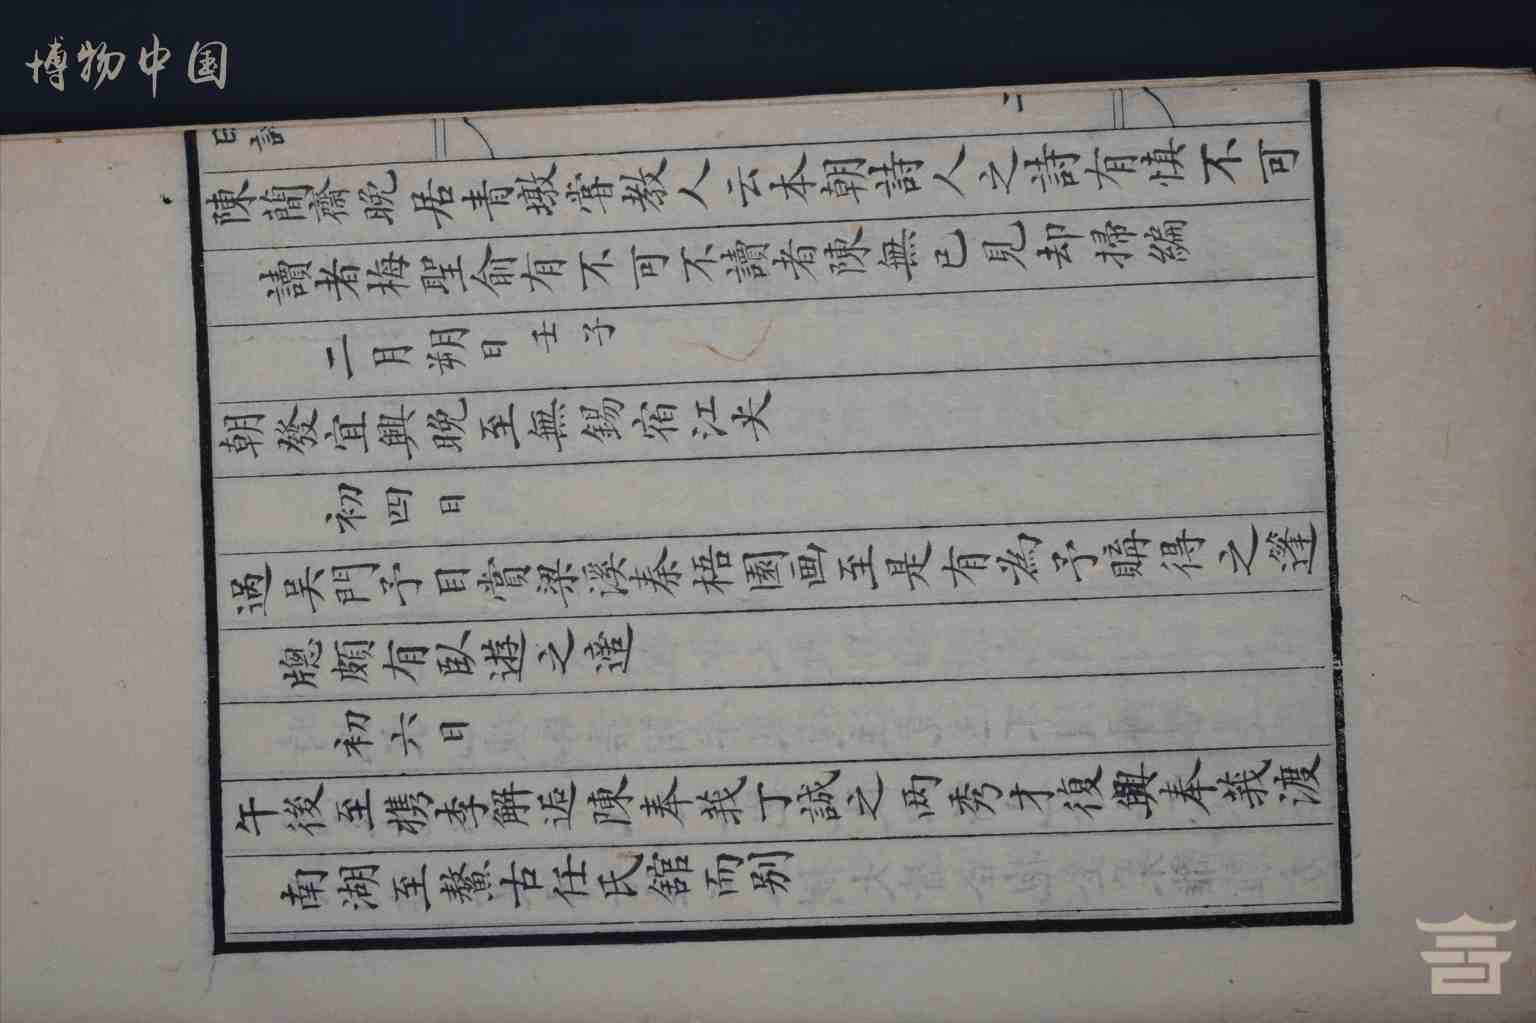 博物中国
日記
二
陳簡齋晚居青墩嘗教人云本朝詩人之詩有慎不可
讀者梅聖俞有不可不讀者陳無已見却掃編
二月朔日壬子
朝發宜興晚至無錫宿江尖
初四日
過吳門予目賞梁溪秦梧園画至是有為予購得之篷
牕頗有臥遊之適
初六日
午後至檇李解逅陳奉莪丁誠之两秀才復與奉莪渡
南湖至鰲古任氏舘而别